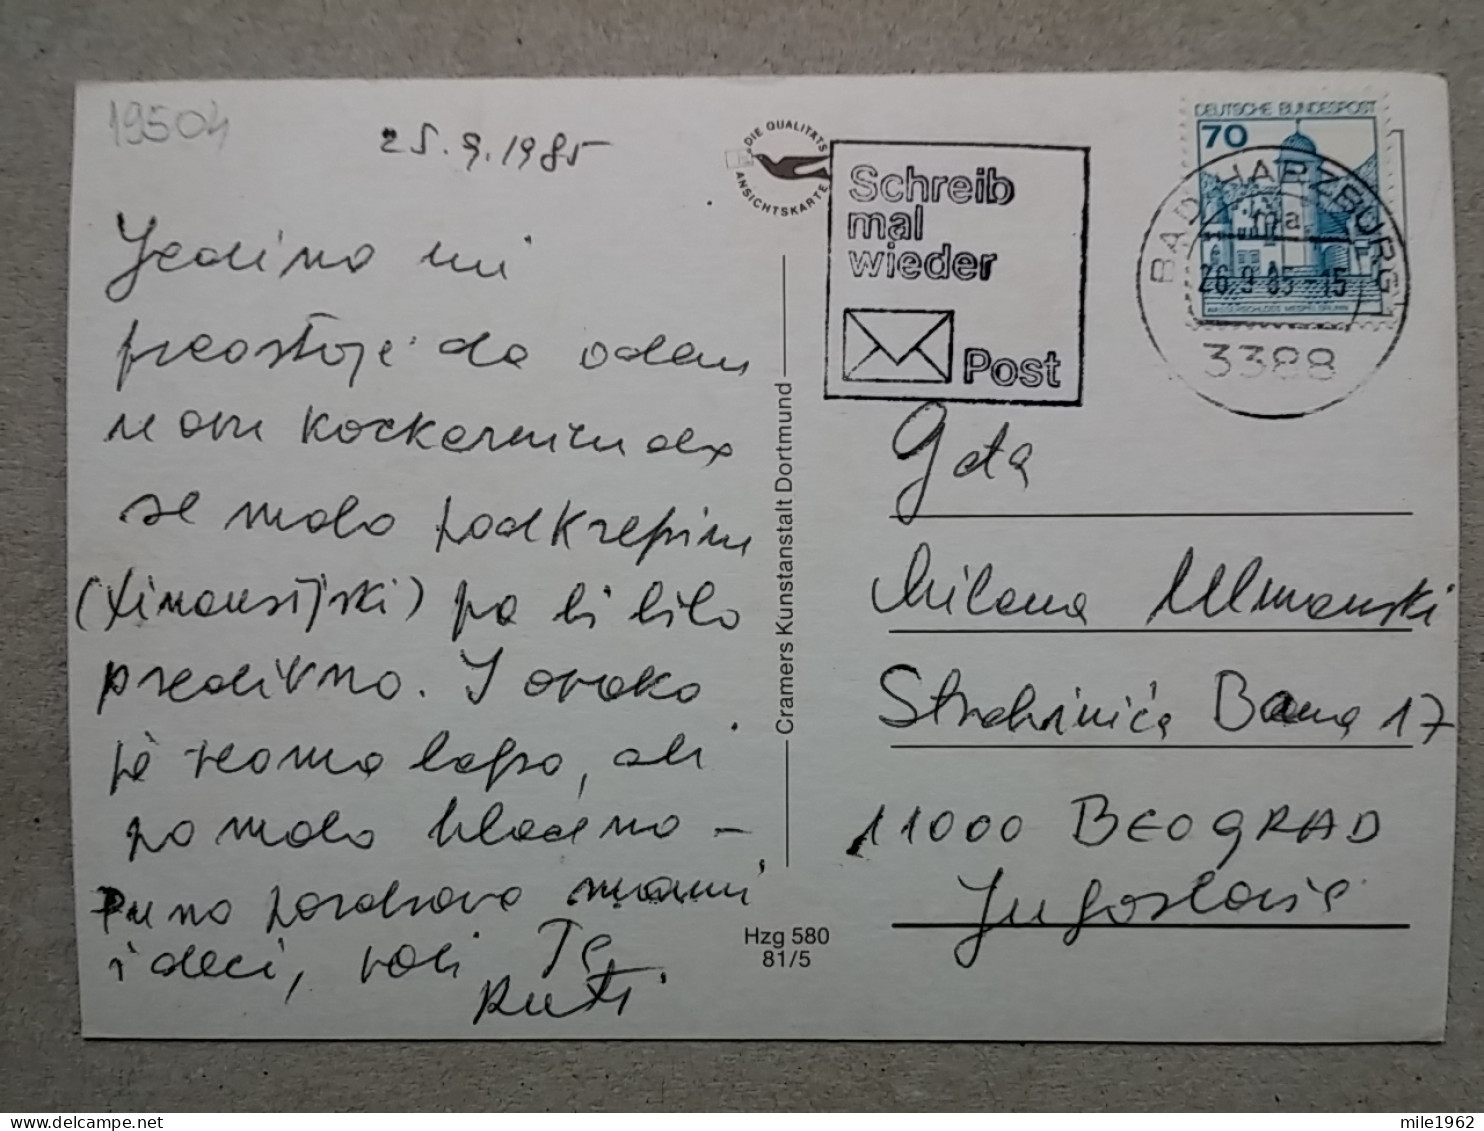 19504
25.9.1985
Jedino mi
preostoje da odem
u ovu kockarnicu da
se malo podkrepim
(finansijski) pa bi bilo
predivno. I ovako
je veoma lepo, ali
po malo hladno –
Puno pozdrava mami
i deci, voli Te
Ruti
DIE QUALITÄTS
ANSICHTSKARTE
Schreib
mal
wieder
Post
DEUTSCHE BUNDESPOST
70
BAD HARZBURG 1
ma
26.9.85-15
3388
Cramers Kunstanstalt Dortmund
Hzg 580
81/5
Gđa
Milena Ulmanski
Strahinića Bana 17
11000 BEOGRAD
Jugoslavija
mile1962